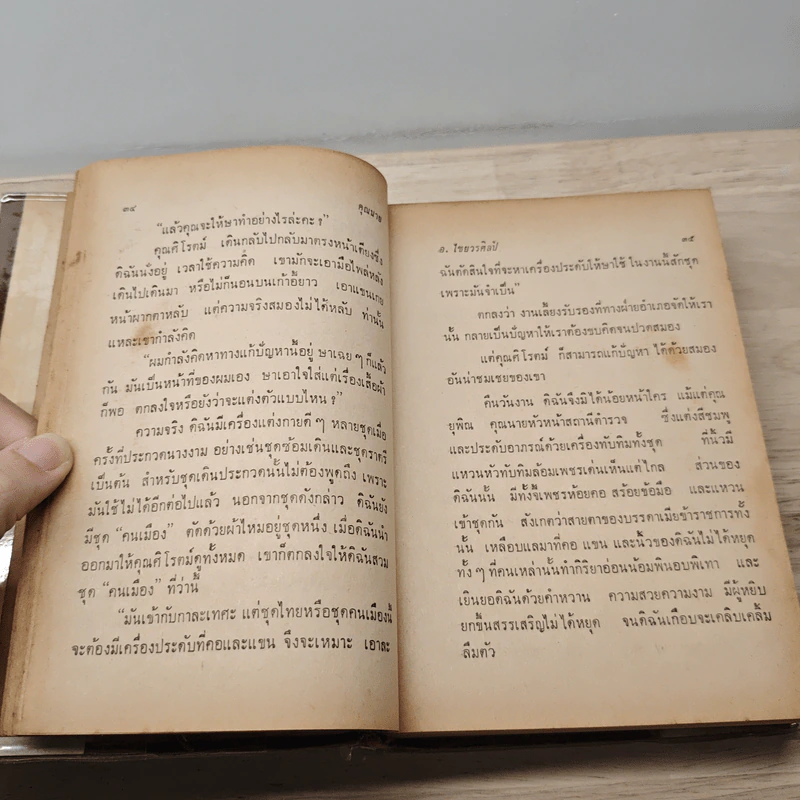 ๓๔ คุณนาย
"แล้วคุณจะให้ษาทำอย่างไรล่ะคะ ?"
คุณศิโรตม์ เดินกลับไปกลับมาตรงหน้าเตียงซึ่ง
ดิฉันนั่งอยู่ เวลาใช้ความคิด เขามักจะเอามือไพล่หลัง
เดินไปเดินมา หรือไม่ก็นอนบนเก้าอี้ยาว เอาแขนเกย
หน้าผากตาหลับ แต่ความจริงสมองไม่ได้หลับ ท่านั้น
แหละเขากำลังคิด
"ผมกำลังคิดหาทางแก้ปัญหานี้อยู่ ษาเฉย ๆ ก็แล้ว
กัน มันเป็นหน้าที่ของผมเอง ษาเอาใจใส่แต่เรื่องเสื้อผ้า
ก็พอ ตกลงใจหรือยังว่าจะแต่งตัวแบบไหน ?"
ความจริง ดิฉันมีเครื่องแต่งกายดี ๆ หลายชุดเมื่อ
ครั้งที่ประกวดนางงาม อย่างเช่นชุดซ้อมเดินและชุดราตรี
เป็นต้น สำหรับชุดเดินประกวดนั้นไม่ต้องพูดถึง เพราะ
มันใช้ไม่ได้อีกต่อไปแล้ว นอกจากชุดดังกล่าว ดิฉันยัง
มีชุด "คนเมือง" ตัดด้วยผ้าไหมอยู่ชุดหนึ่ง เมื่อดิฉันนำ
ออกมาให้คุณศิโรตม์ดูทั้งหมด เขาก็ตกลงใจให้ดิฉันสวม
ชุด "คนเมือง" ที่ว่านี้
"มันเข้ากับกาละเทศะ แต่ชุดไทยหรือชุดคนเมืองนี้
จะต้องมีเครื่องประดับที่คอและแขน จึงจะเหมาะ เอาละ
อ. ไชยวรศิลป์ ๓๕
ฉันตัดสินใจที่จะหาเครื่องประดับให้ษาใช้ ในงานนี้สักชุด
เพราะมันจำเป็น"
ตกลงว่า งานเลี้ยงรับรองที่ทางฝ่ายอำเภอจัดให้เรา
นั้น กลายเป็นปัญหาให้เราต้องขบคิดจนปวดสมอง
แต่คุณศิโรตม์ ก็สามารถแก้ปัญหา ได้ด้วยสมอง
อันน่าชมเชยของเขา
คืนวันงาน ดิฉันจึงมิได้น้อยหน้าใคร แม้แต่คุณ
ยุพิณ คุณนายหัวหน้าสถานีตำรวจ ซึ่งแต่งสีชมพู
และประดับอาภรณ์ด้วยเครื่องทับทิมทั้งชุด ที่นิ้วมี
แหวนหัวทับทิมล้อมเพชรเด่นเห็นแต่ไกล ส่วนของ
ดิฉันนั้น มีทั้งจี้เพชรห้อยคอ สร้อยข้อมือ และแหวน
เข้าชุดกัน สังเกตว่าสายตาของบรรดาเมียข้าราชการทั้ง
นั้น เหลือบแลมาที่คอ แขน และนิ้วของดิฉันไม่ได้หยุด
ทั้ง ๆ ที่คนเหล่านั้นทำกิริยาอ่อนน้อมพินอบพิเทา และ
เยินยอดิฉันด้วยคำหวาน ความสวยความงาม มีผู้หยิบ
ยกขึ้นสรรเสริญไม่ได้หยุด จนดิฉันเกือบจะเคลิบเคลิ้ม
ลืมตัว